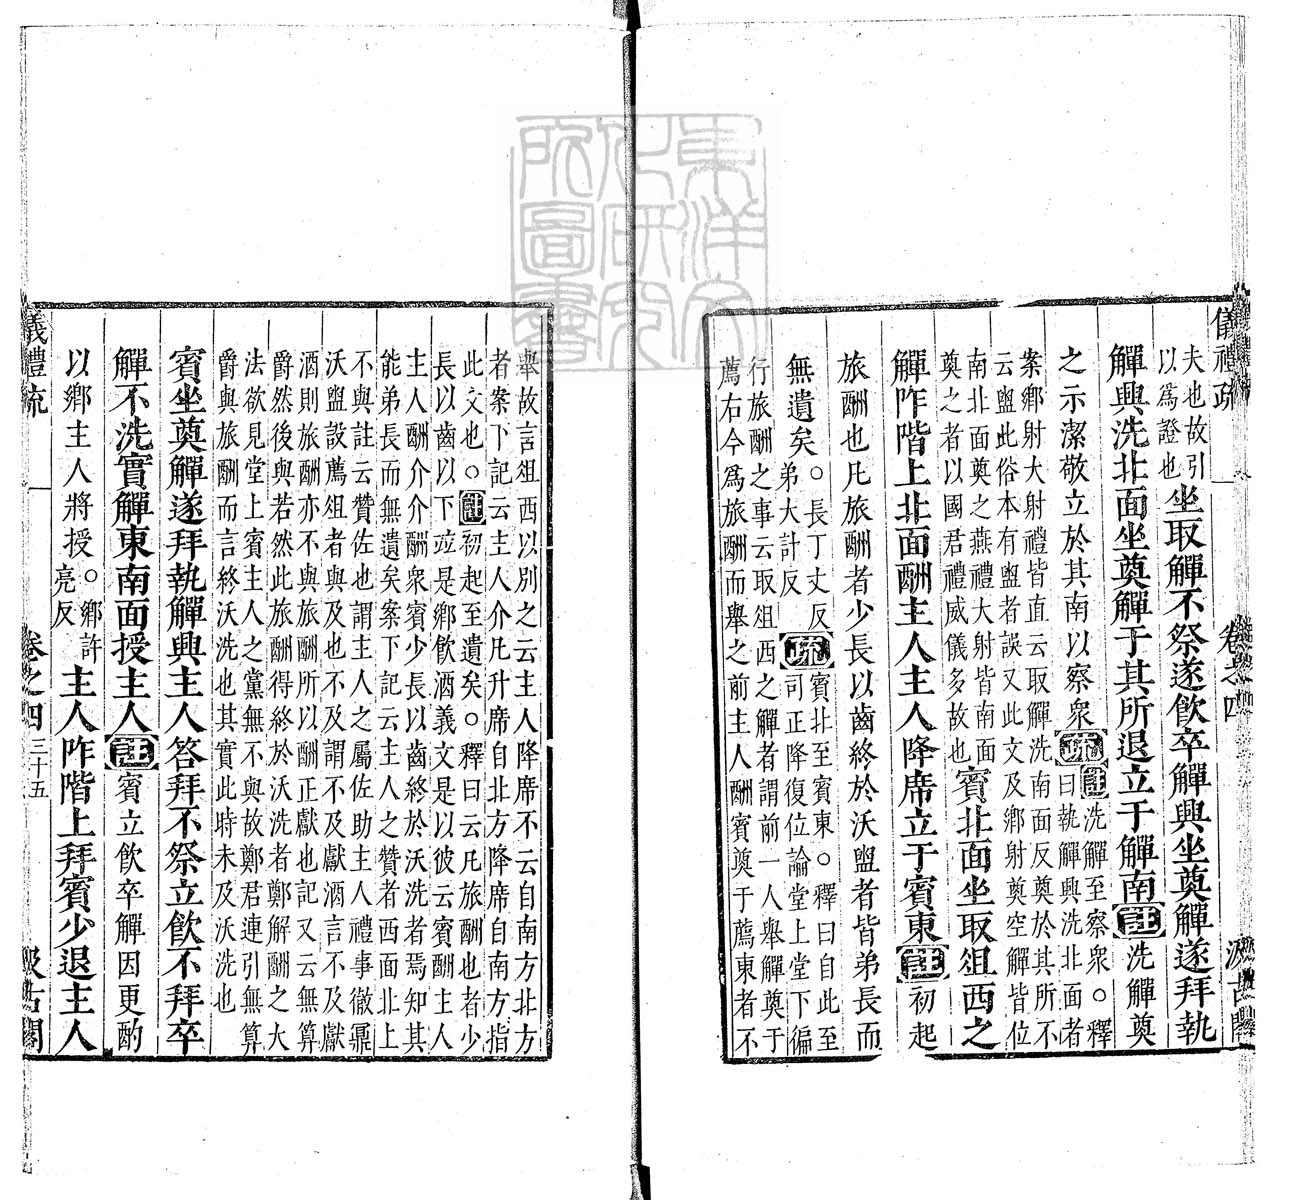 儀禮疏 卷之四 汲古閣
夫也故引
以為證也
坐取觶不祭遂飲卒觶興坐奠觶遂拜執
觶興洗北面坐奠觶于其所退立于觶南註洗觶奠
之示潔敬立於其南以察眾疏註洗觶至察眾○釋
曰執觶興洗北面者
案鄉射大射禮皆直云取觶洗南面反奠於其所不
云盥此俗本有盥者誤又此文及鄉射奠空觶皆位
南北面奠之燕禮大射皆南面
奠之者以國君禮威儀多故也
賓北面坐取俎西之
觶阼階上北面酬主人主人降席立于賓東註初起
旅酬也凡旅酬者少長以齒終於沃盥者皆弟長而
無遺矣○長丁丈反
弟大計反
疏賓北至賓東○釋曰自此至
司正降復位論堂上堂下徧
行旅酬之事云取俎西之觶者謂前一人舉觶奠于
薦右今為旅酬而舉之前主人酬賓奠于薦東者不
舉故言俎西以別之云主人降席不云自南方北方
者案下記云主人介凡升席自北方降席自南方指
此文也○註初起至遺矣○釋曰云凡旅酬也者少
長以齒以下竝是鄉飲酒義文是以彼云賓酬主人
主人酬介介酬眾賓少長以齒終於沃洗者焉知其
能弟長而無遺矣案下記云主人之贊者西面北上
不與註云贊佐也謂主人之屬佐助主人禮事徹鼏
沃盥設薦俎者與及也不及謂不及獻酒言不及獻
酒則旅酬亦不與旅酬所以酬正獻也記又云無算
爵然後與若然此旅酬得終於沃洗者鄭解酬之大
法欲見堂上賓主人之黨無不與故鄭君連引無算
爵與旅酬而言終沃洗也其實此時未及沃洗也
賓坐奠觶遂拜執觶興主人答拜不祭立飲不拜卒
觶不洗實觶東南面授主人註賓立飲卒觶因更酌
以鄉主人將授○鄉許
亮反
主人阼階上拜賓少退主人
儀禮疏 卷之四 三十五 汲古閣
東洋文
化研究
所圖書